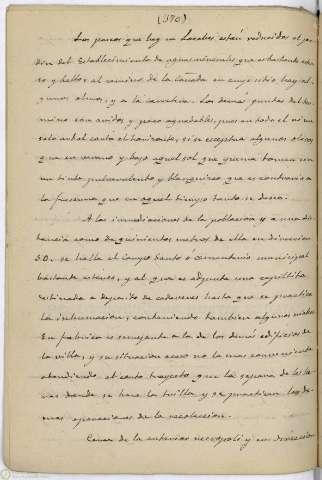 (370)
Los paseos que hay en Loeches están reducidos al jar-
din del establecimiento de aguas minerales que es bastante exten-
so y bello, al camino de la cañada en cuyo sitio hay al-
gunos olmos, y a la carretera. Los demás puntos del ter-
mino son aridos y poco agradables, pues en todo el no se ve
solo un bol canta el horizonte, si se exceptua algunos olivos
que en verano y bajo aquel sol que quema toman con
un tinte pulverulento y blanquizco que es contrario a
la frescura que en aquel tiempo tanto se desea.
A las inmediaciones de la poblacion y a una dis-
tancia como de quinientos metros de ella en direccion
S.O. se halla el Campo Santo o cementerio municipal
bastante extenso, y al que es adjunta una capillita
destinada a deposito de cadaveres hasta que se practica
la inhumacion, conteniendo tambien algunos nichos.
Su fabrica es semejante a la de los demas edificios de
la villa, y su situacion acaso no la mas conveniente
atendiendo al corto trayecto que la separa de las he-
ras donde se hace la trilla y se practican las de-
mas operaciones de la recoleccion.
Cerca de la anterior necropoli y en direccion